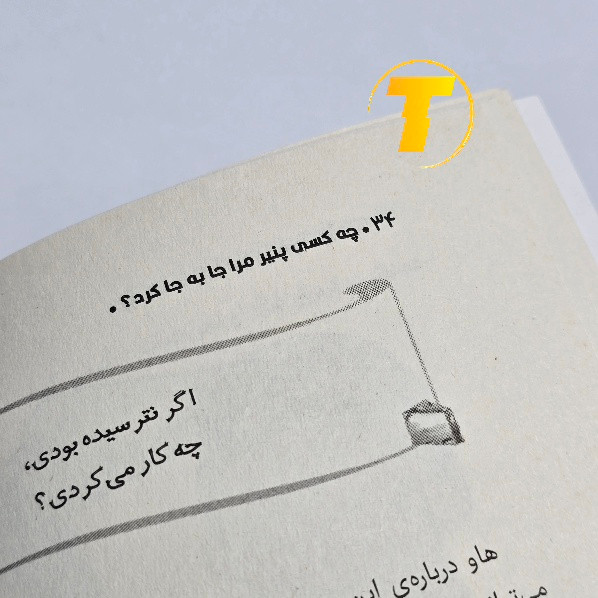 T
۳۴ • چه کسی پنیر مرا جا به جا کرد؟ •
اگر نترسیده بودی،
چه کار می‌کردی؟
هاو درباره‌ی این